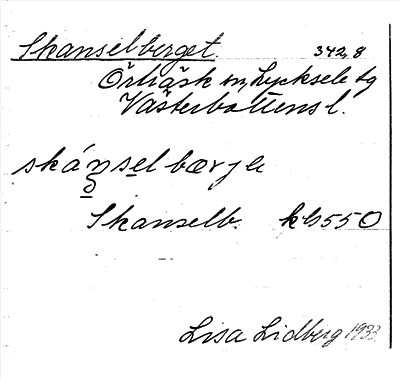 Skanselberget. 342,8
Örträsk sn, Lycksele tg
Västerbottens l.
skánsel bærje
Skanselb. kb 550
Lisa Lidberg 1933.